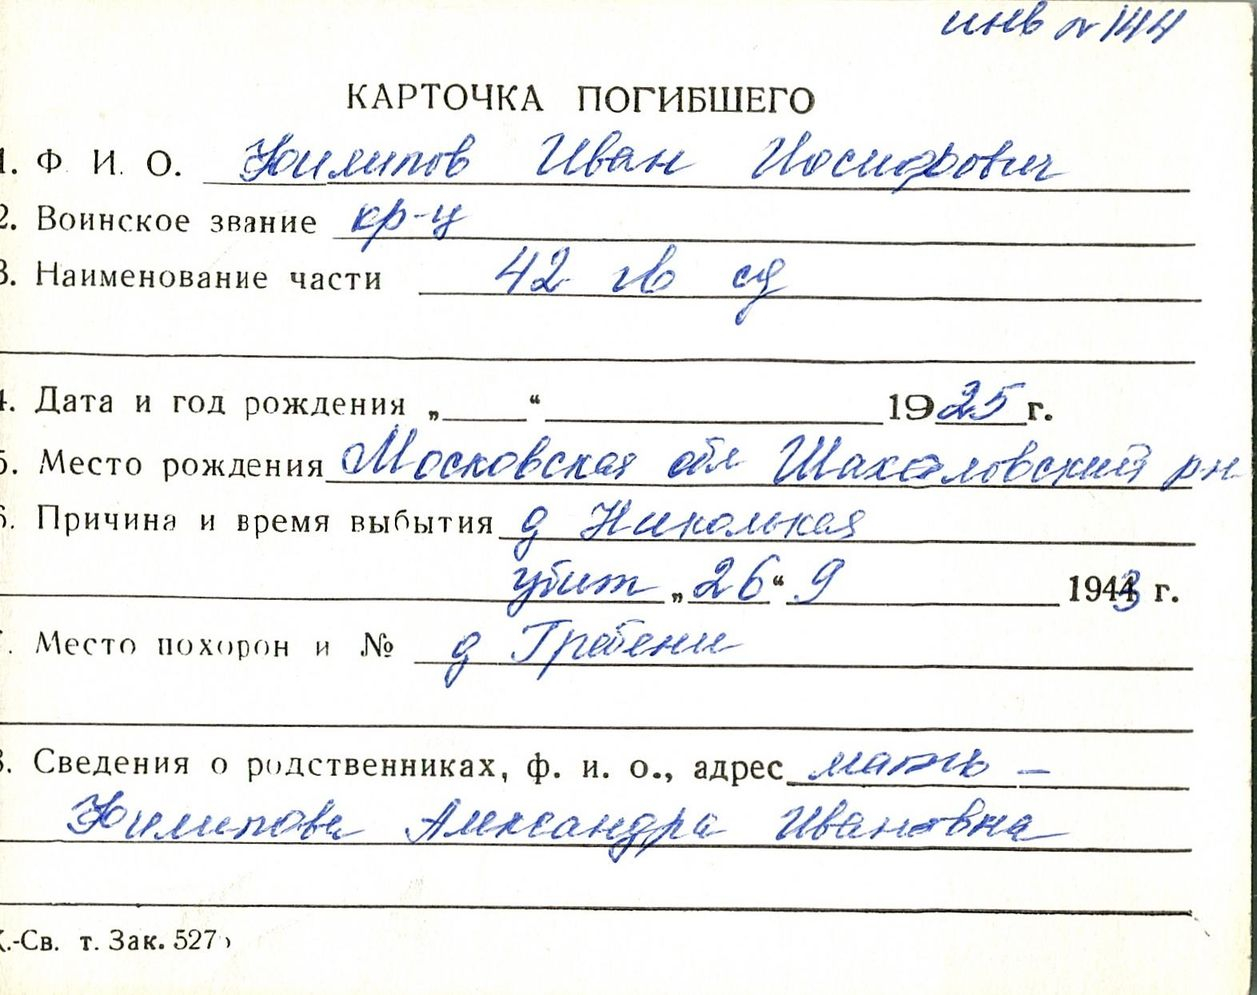 инв № 144
КАРТОЧКА ПОГИБШЕГО
1. Ф. И. О. Филипов Иван Иосифович
2. Воинское звание кр-ц
3. Наименование части 42 гв сд
4. Дата и год рождения „ “ 1925 г.
5. Место рождения Московская обл Шаховский рн
6. Причина и время выбытия д Никольная
убит „26“ 9 1943 г.
7. Место похорон и № д Гребени
8. Сведения о родственниках, ф. и. о., адрес мать –
Филипова Александра Ивановна
К.-Св. т. Зак. 527